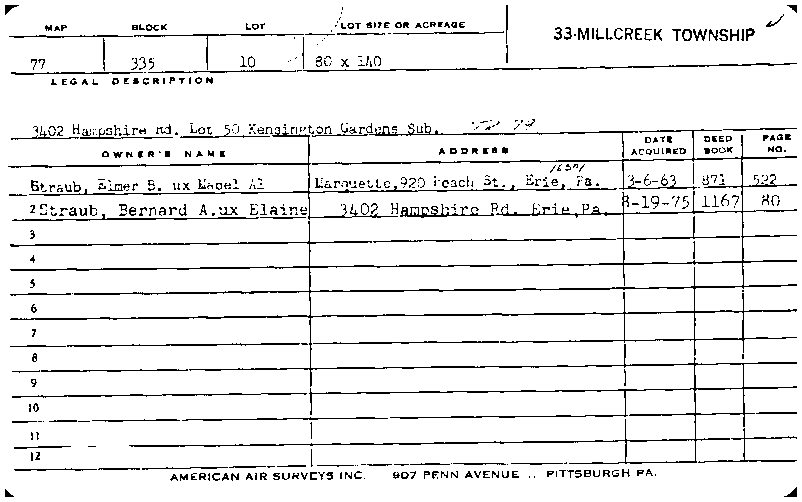 MAP BLOCK LOT LOT SIZE OR ACREAGE
33-MILLCREEK TOWNSHIP
77 335 10 80 x 140
LEGAL DESCRIPTION
3402 Hampshire Rd. Lot 50 Kensington Gardens Sub.
OWNER'S NAME ADDRESS DATE ACQUIRED DEED BOOK PAGE NO.
Straub, Elmer B. ux Mabel Al Marquette, 920 Peach St., Erie, Pa. 3-6-63 871 522
2 Straub, Bernard A.ux Elaine 3402 Hampshire Rd. Erie,Pa. 8-19-75 1167 80
3
4
5
6
7
8
9
10
11
12
AMERICAN AIR SURVEYS INC. 907 PENN AVENUE .. PITTSBURGH PA.